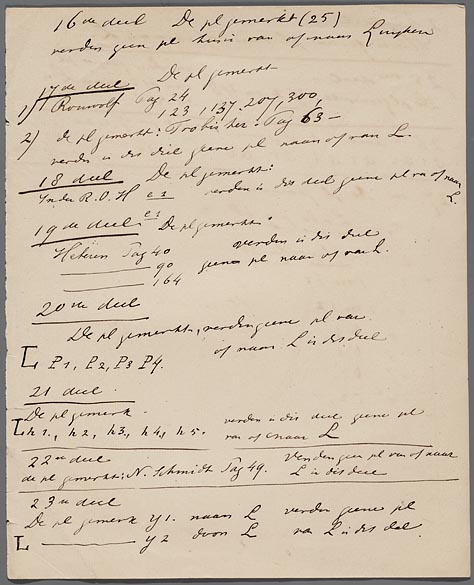 16de deel De pl gemerkt (25)
verders geen pl van of naar Luyken
17de deel De pl gemerkt
1) Rouwolf Pag 24
123, 137, 207, 300,
2) de pl gemerkt: Pag 63 –
verders is dis deel geene pl naar of van L.
18 deel De pl gemerkt:
In de R.O.H e1 verders is dis deel geene pl van of naar
e1 L.
19de deel De pl gemerkt:
Heteren Pag 40 verders is dis deel
90 geene pl naar of van L.
164
20ste deel
De pl gemerkt, verders geene pl van
of naar L is dis deel
L P1, P2, P3 P4.
21 deel.
De pl gemerk.
L h1., h2, h3, h4, h5. verders is dis deel geene pl
van of naar L
22ste deel
de pl gemerkt: N. Schmidt Pag 49. Verders geen pl van of naar
L is dis deel
23ste deel
De pl gemerk y1. naar L verders geene pl
L y2 door L van L is dis deel.